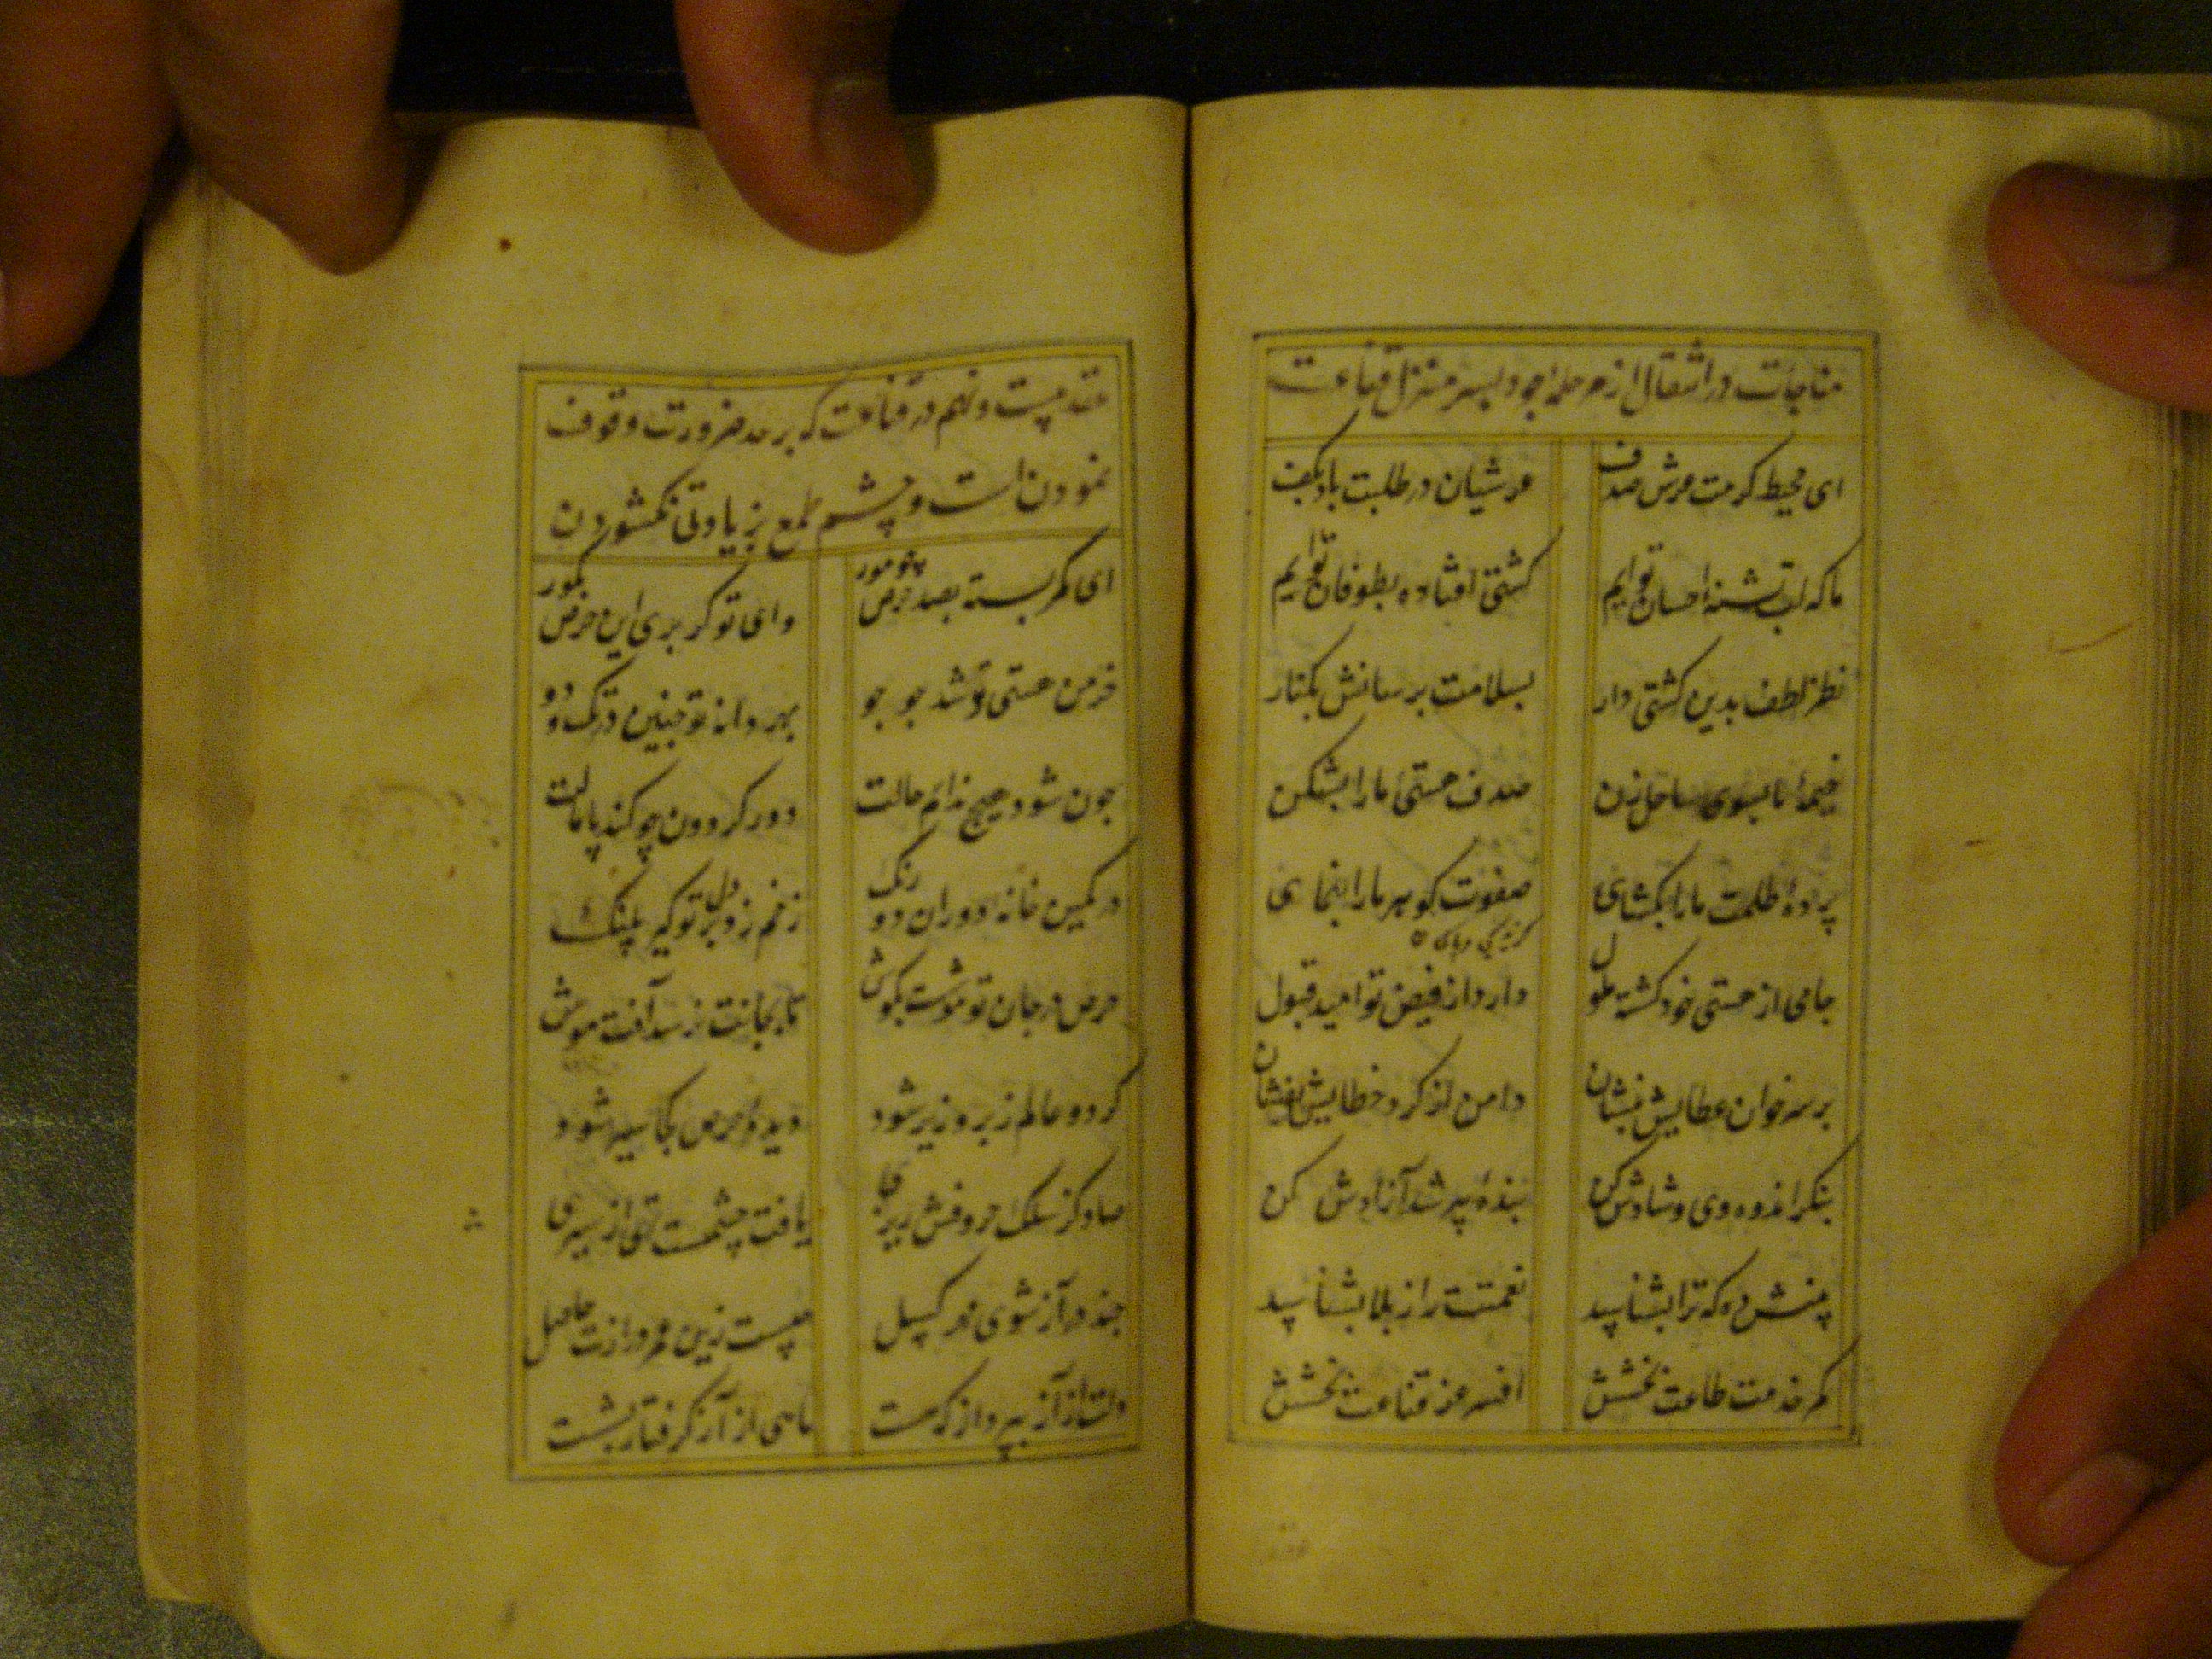 مناجات در انتقال از مرحله جود بسر منزل قناعت
ای محیط کرمت عرش صدف عرشیان در طلبت باد بکف
ما که لب تشنه احسان توایم کشتی افتاده بطوفان توایم
نظر لطف بدین کشتی دار بسلامت برسانش بکنار
خیمهٔ ما بسوی ساحل زن صدف هستی ما را بشکن
پردهٔ ظلمت ما را بکشای صفوت کوهر ما را بنمای
جامی از هستی خود کشته ملول دارد از فیض تو امید قبول
بر سر خوان عطایش بنشان دامن از کرد خطایش افشان
بنکر اندوه وی و شادش کن بندهٔ پیر شد آزادش کن
بینش ده که ترا بشناسد نعمتت را ز بلا بشناسد
کمر خدمت طاعت بخشش افسر عز قناعت بخشش
عقد بیست و نهم در قناعت که بر حد ضرورت وقوف
نمودن است و چشم طمع بزیادتی نکشودن
ای کمر بسته بصد حرص چو مور وای تو کر بری این حرص بکور
خرمن هستی تو شد جو جو بهر دانه تو چنین در تک و دو
چون شود هیچ ندانم حالت دور کردون چو کند پامالت
در کمین خانه دوران دو رنک زخم زد بر دل تو کبر پلنک
حرص در جان تو موشت بکوش تا بجانت نرسد آفت موش
کر دو عالم زبر و زیر شود دیدهٔ حرص کجا سیر شود
صاد کز سلک حروفش زیر یافت چشمست تهی از سیری
چند در آز شوی مهر کسل چیست زین عمر درازت حاصل
دلت از آز بپرداز که هست ماهی از آز کرفتار بشست